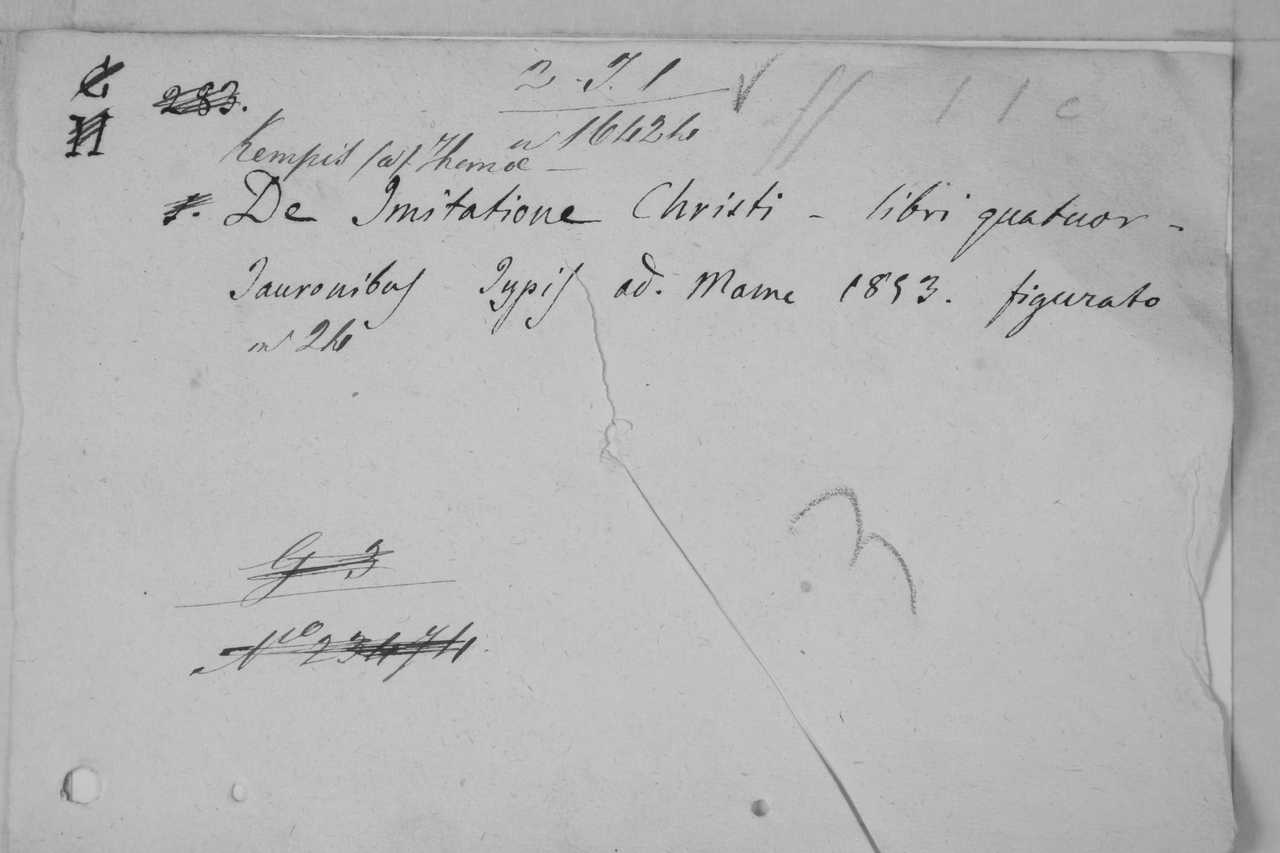 C
H
283.
2. J. 1
n 16424
Kempis (a) Thomæ –
s. De Imitatione Christi – libri quatuor –
Tauronibus Typis ad. Mame 1853. figurato
in 24
3
G 3
No 23474.